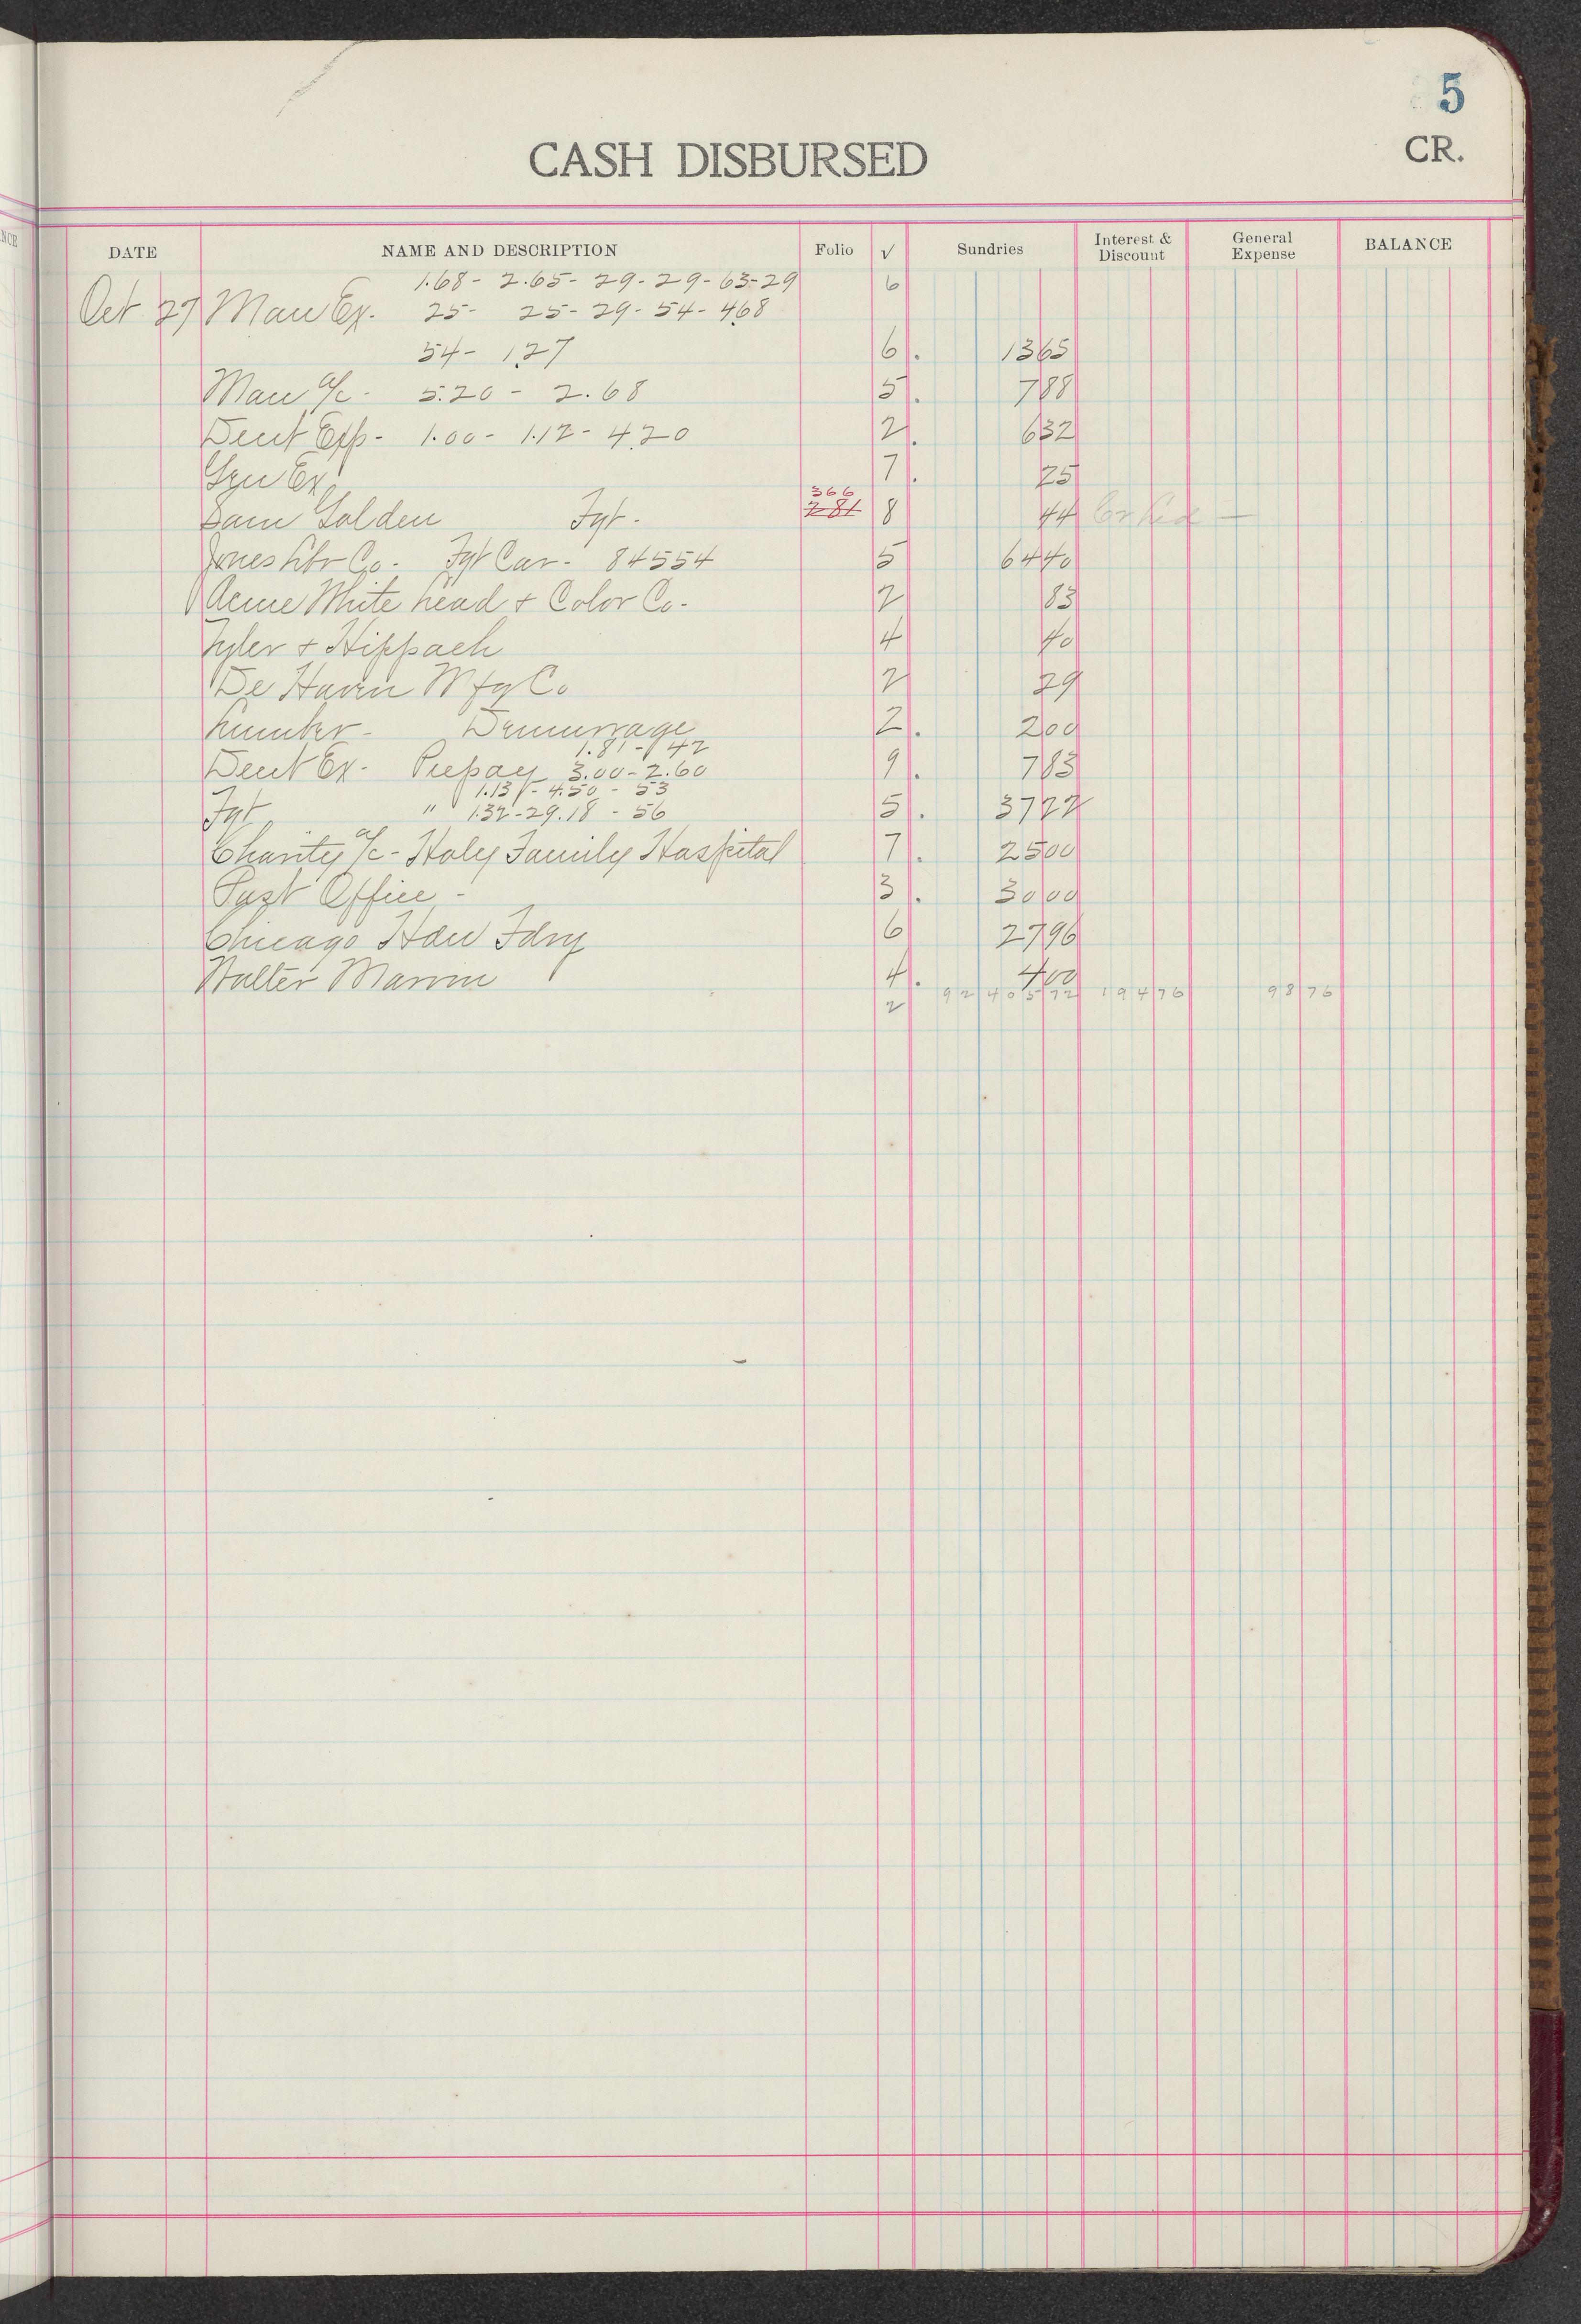 5
CASH DISBURSED CR.
DATE NAME AND DESCRIPTION Folio √ Sundries Interest & Discount General Expense BALANCE
1.68 - 2.65 - 29 - 29 - 63 - 29 6
Oct 27 Manu Ex. 25 - 25 - 29 - 54 - 4.68
54 - 1.27 6 . 13 65
Manu a/c - 5.20 - 2.68 5 . 7 88
Deut Exp - 1.00 - 1.12 - 4.20 2 . 6 32
Gen Ex 7 . 25
366
Sam Golden Fgt - 281 8 44
Jones Lbr Co. - Fgt Car - 84554 5 64 40
Acme White Lead + Color Co - 2 83
Tyler + Hippach 4 40
De Haven Mfg Co 2 29
Lumber - Demurrage 2 . 2 00
1.81 - 42
Deut Ex - Prepay 3.00 - 2.60 9 . 7 83
1.13 - 4.50 - 53
Fgt " 1.32 - 29.18 - 56 5 . 37 22
Charity a/c - Holy Family Hospital 7 . 25 00
Post Office - 3 . 30 00
Chicago Hdw Fdry 6 27 96
Walter Marvin 4 . 4 00
2 92 405 72 194 76 98 76